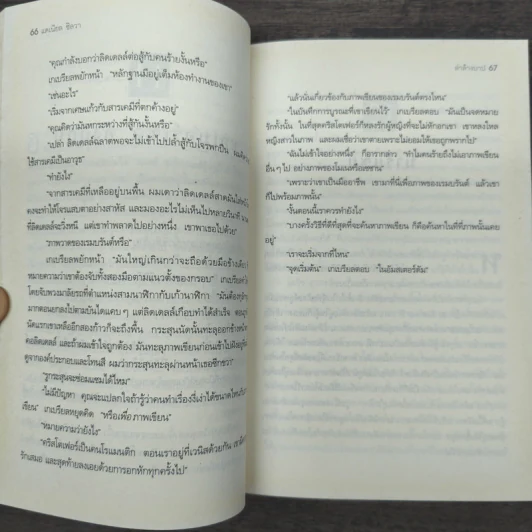 66 แดเนียล ซิลวา
"คุณกำลังบอกว่าลิดเดลล์ต่อสู้กับคนร้ายงั้นหรือ"
เกเบรียลพยักหน้า "หลักฐานมีอยู่เต็มห้องทำงานของเขา"
"เช่นอะไร"
"เริ่มจากเศษแก้วกับสารเคมีที่ตกค้างอยู่"
"คุณคิดว่ามันหกระหว่างที่สู้กันงั้นหรือ"
"เปล่า ลิดเดลล์ฉลาดพอจะไม่เข้าไปปล้ำสู้กับโจรพกปืน
ใช้สารเคมีเป็นอาวุธ"
"ทำยังไง"
"จากสารเคมีที่เหลืออยู่บนพื้น ผมเดาว่าลิดเดลล์สาดมันใส่
คงจะทำให้โจรแสบตาอย่างสาหัส และมองอะไรไม่เห็นไปหลายวินาที
ที่ลิดเดลล์จะวิ่งหนี แต่เขาทำพลาดไปอย่างหนึ่ง เขาพาเธอไปด้วย"
"ภาพวาดของเรมบรันต์หรือ"
เกเบรียลพยักหน้า "มันใหญ่เกินกว่าจะถือด้วยมือข้างเดียว
หมายความว่าเขาต้องจับทั้งสองมือตามแนวตั้งของกรอบ" เกเบรียล
โดยจับพวงมาลัยรถที่ตำแหน่งสามนาฬิกากับเก้านาฬิกา "มันต้อง
มากตอนยกลงไปตามบันไดแคบๆ แต่ลิดเดลล์เกือบทำได้สำเร็จ
นัดแรกเขาเหลืออีกสองก้าวก็จะถึงพื้น กระสุนนัดนั้นทะลุออก
คอลิดเดลล์ และถ้าผมเข้าใจถูกต้อง มันทะลุภาพเขียนก่อนเข้าไปฝัง
ดูจากองค์ประกอบและโทนสี ผมว่ากระสุนทะลุผ่านหน้าเธอซีกขวา"
"รูกระสุนจะซ่อมแซมได้ไหม"
"ไม่มีปัญหา คุณจะแปลกใจถ้ารู้ว่าคนทำเรื่องงี่เง่าได้ขนาดไหน
เขียน" เกเบรียลหยุดคิด "หรือเพื่อภาพเขียน"
"หมายความว่ายังไง"
"คริสโตเฟอร์เป็นคนโรแมนติก ตอนเราอยู่ที่เวนิสด้วยกัน
รักเสมอ และสุดท้ายลงเอยด้วยการอกหักทุกครั้งไป"
67
"แล้วนั่นเกี่ยวข้องกับภาพเขียนของเรมบรันต์ตรงไหน"
"ในบันทึกการบูรณะที่เขาเขียนไว้" เกเบรียลตอบ "มันเป็นจดหมาย
รักทั้งนั้น ในที่สุดคริสโตเฟอร์ก็หลงรักผู้หญิงที่จะไม่หักอกเขา เขาหลงใหล
หญิงสาวในภาพ และผมเชื่อว่าเขาตายเพราะไม่ยอมให้เธอถูกพรากไป"
"ฉันไม่เข้าใจอย่างหนึ่ง" คิอารากล่าว "ทำไมคนร้ายถึงไม่เอาภาพเขียน
อื่นๆ ไป อย่างภาพของโมเนหรือเซซาน"
"เพราะว่าเขาเป็นมืออาชีพ เขามาที่นี่เพื่อภาพของเรมบรันต์ แล้วเขา
ก็ไปพร้อมภาพนั้น"
"งั้นตอนนี้เราควรทำยังไง"
"บางครั้งวิธีที่ดีที่สุดที่จะค้นหาภาพเขียน ก็คือค้นหาในที่ที่ภาพนั้นเคย
อยู่"
"เราจะเริ่มจากที่ไหน"
"จุดเริ่มต้น" เกเบรียลตอบ "ในอัมสเตอร์ดัม"